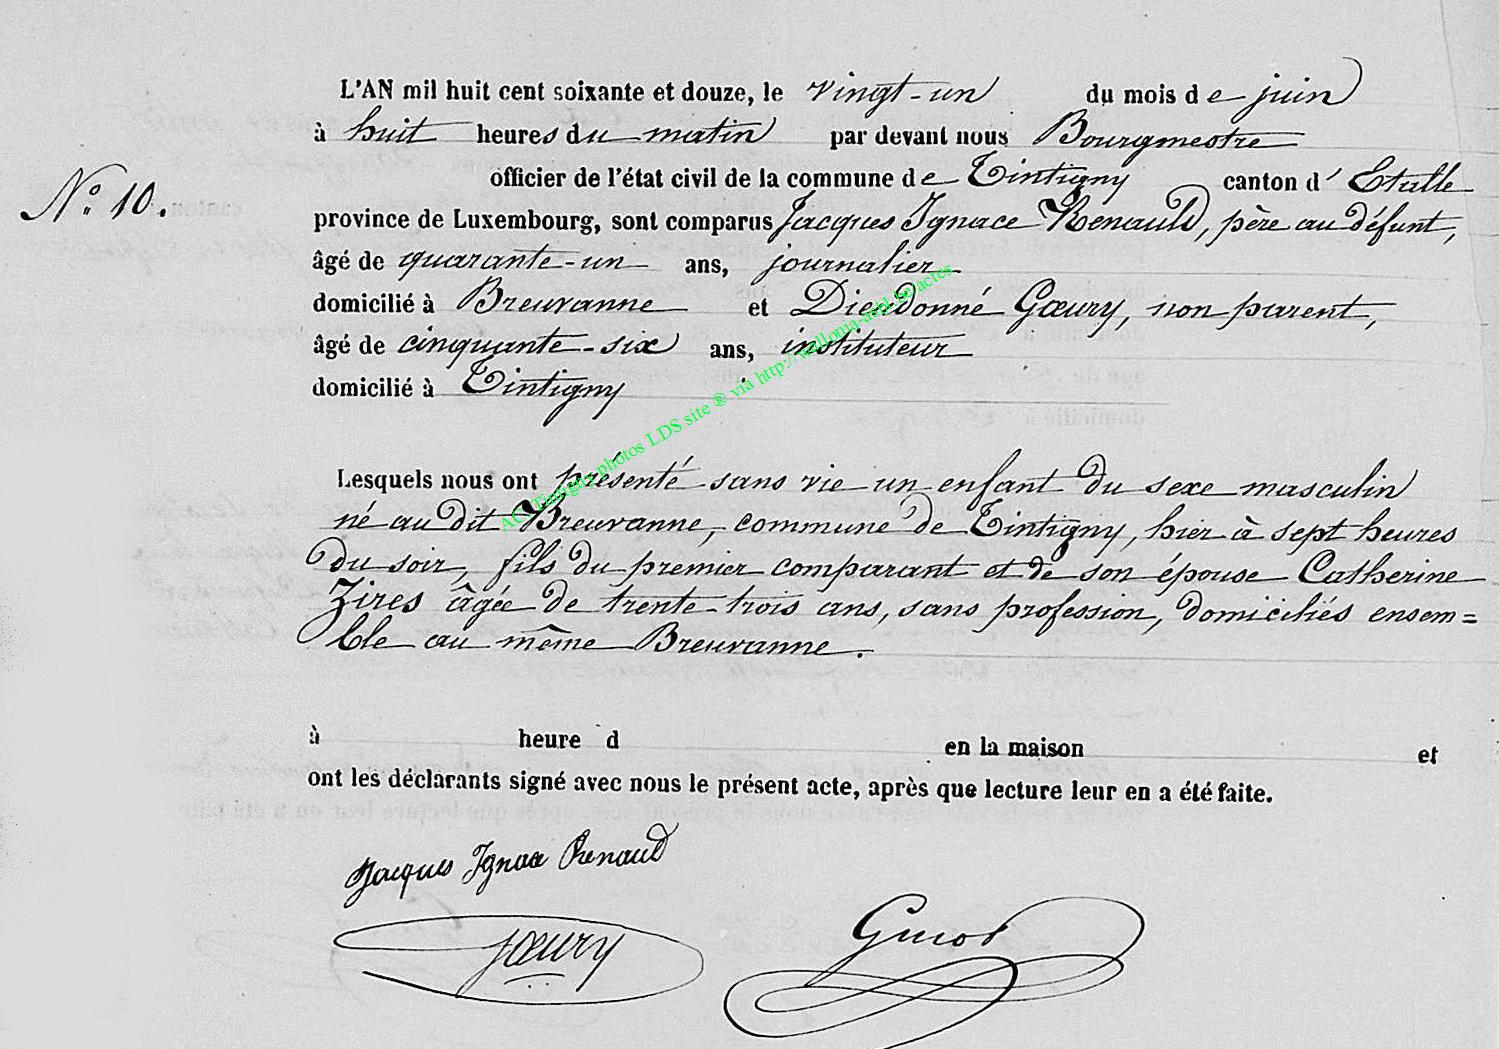 L'AN mil huit cent soixante et douze, le vingt-un du mois de juin
à huit heures du matin par devant nous Bourgmestre
officier de l'état civil de la commune de Tintigny canton d'Etalle
N° 10.
province de Luxembourg, sont comparus Jacques Ignace Renauld, père au défunt,
âgé de quarante-un ans, journalier
domicilié à Breuvanne et Dieudonné Gœury, non parent,
âgé de cinquante-six ans, instituteur
domicilié à Tintigny
Lesquels nous ont présenté sans vie un enfant du sexe masculin
né au dit Breuvanne, commune de Tintigny, hier à sept heures
du soir, fils du premier comparant et de son épouse Catherine
Zires âgée de trente-trois ans, sans profession, domiciliés ensem=
ble au même Breuvanne.
à heure d en la maison et
ont les déclarants signé avec nous le présent acte, après que lecture leur en a été faite.
Jacques Ignace Renauld
Gœury
photos LDS site ® via http://